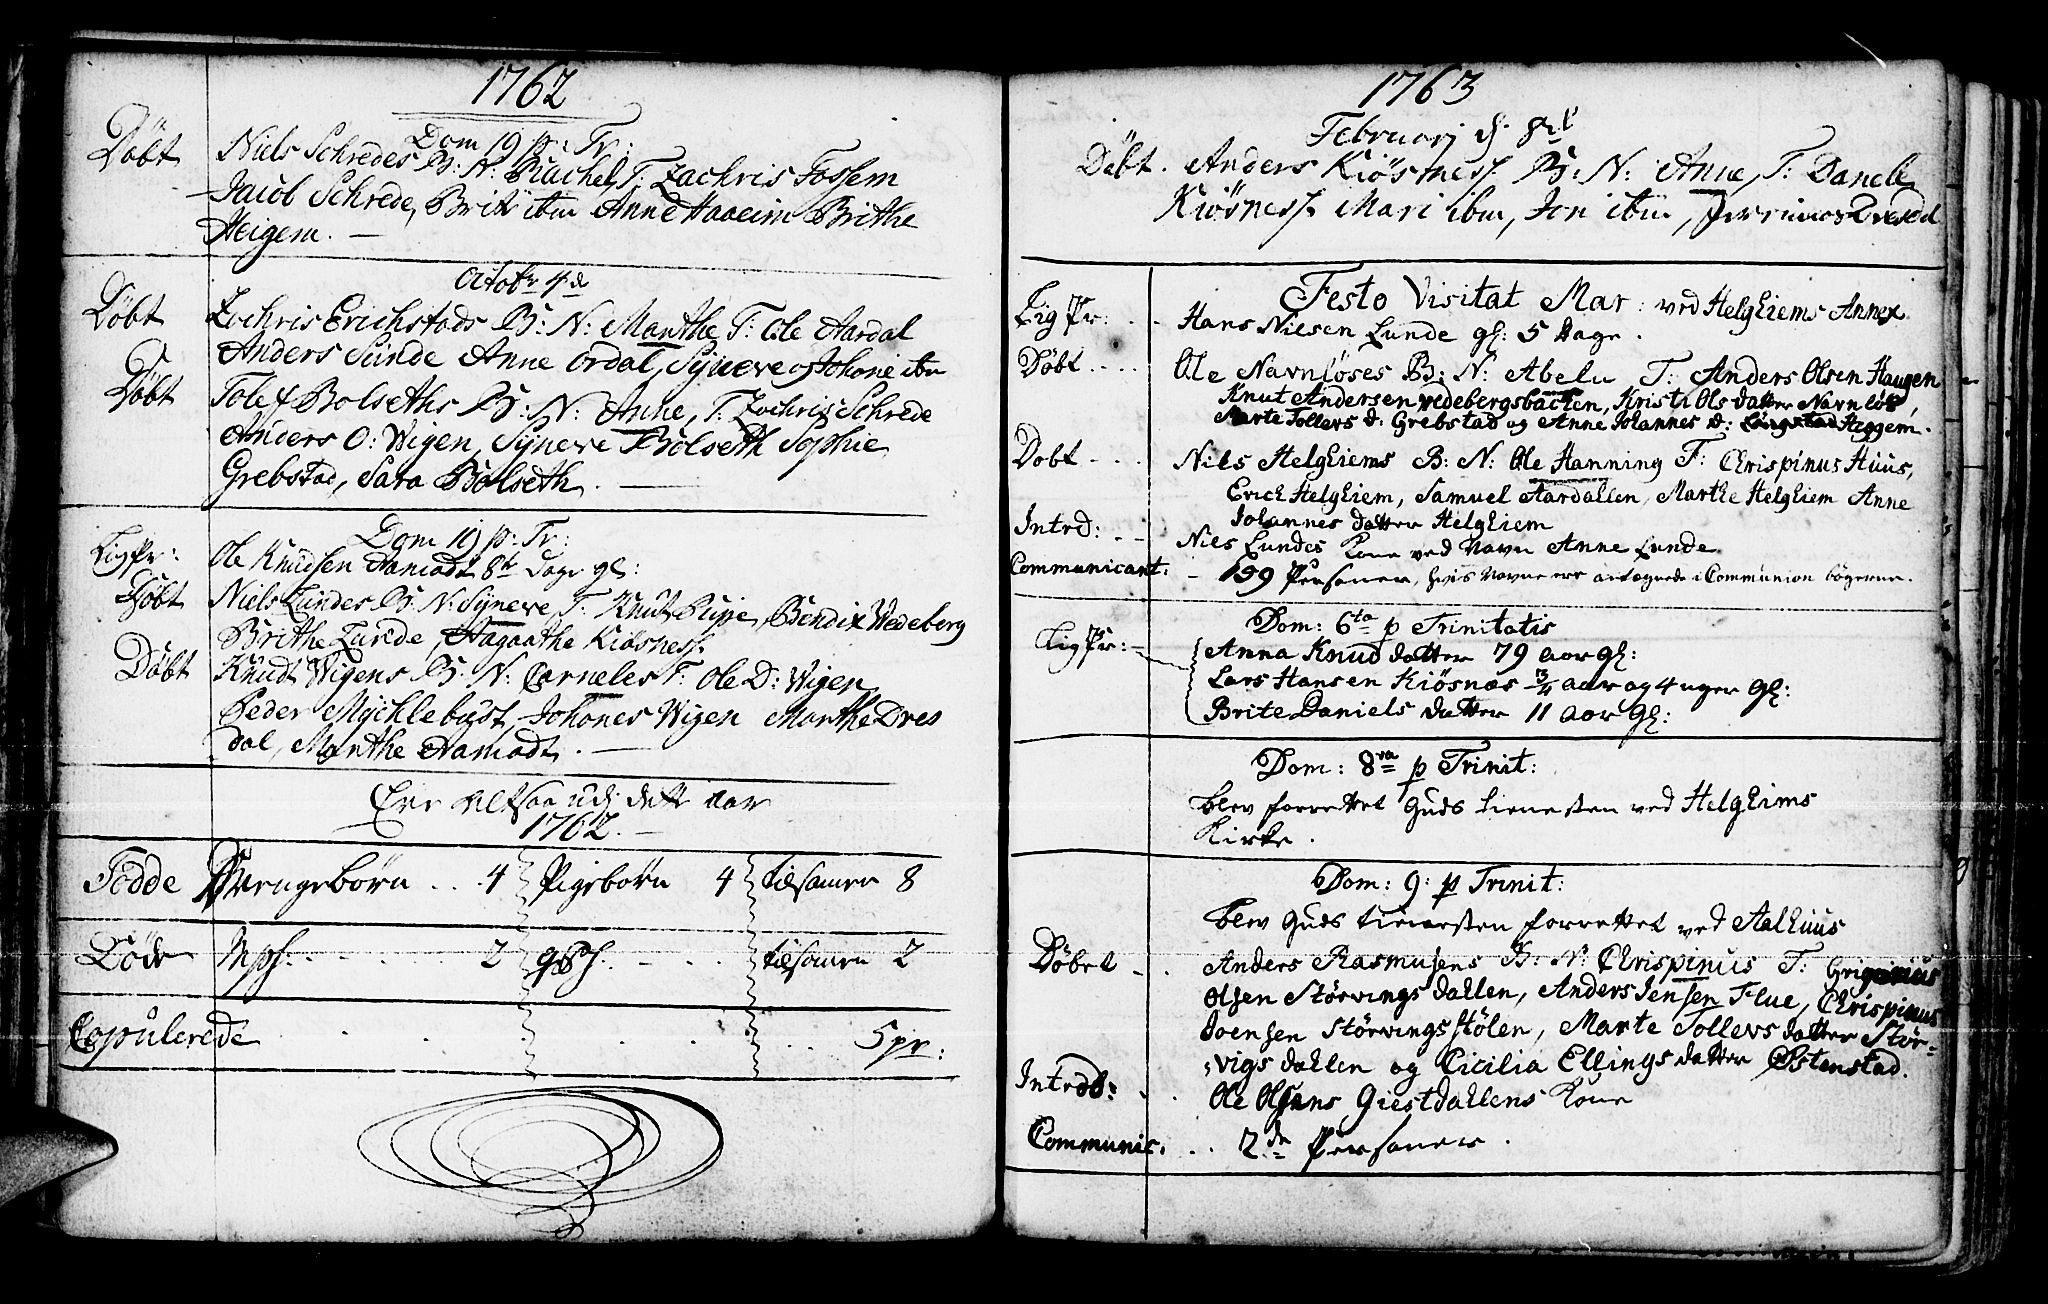 1762
Dom 19 p: Tr:
Døbt Niels Schredes B: N: Rachel T: Zachris Fossem
Jacob Schrede, Brit ibm Anne Haaeim Brithe
Heigem.
Octobr 4de
Døbt Zachris Erichstads B: N: Marthe T: Ole Aardal
Anders Sunde Anne Ordal, Syneve og Johane ibm
Døbt Tolef Bolseths B: N: Anne, T: Zachris Schrede
Anders O: Wigen, Syneve Bolseth Sophie
Grebstad, Sara Bolseth.
Dom 19 p: Tr:
Lig Pr: Ole Knudsen Aamodt 8te Dage gl:
Døbt Niels Lundes B: N: Syneve T: Knut Rippe, Bendix Wedeberg
Brithe Lunde, Aagaathe Kiösness.
Døbt Knudt Wigens B: N: Corneles T: Ole D: Wigen,
Peder Mychlebust, Johanes Wigen Marthe Dres
dal, Marthe Aamodt.
Err altsaa udj dette aar
1762.
Födde Drengebörn . . . 4 Pigebörn 4 tilsamen 8
Døde Mp: . . . 2 tilsamen 2
Copulerede . . . 5 pr:
1763
Februarj d. 8de
Døbt. Anders Kiösness. B: N: Anne, T: Daniel
Kiösness. Mari ibm, Jon ibm,
Festo Visitat Mar: ved Helghiems Annex
Lig Pr: . . Hans Nilsen Lunde gl: 5 Dage.
Døbt . . . . Ole Navnløses B: N: Abelu T: Anders Olsen Haugen
Knut Andersen vedebergsbacken, Kristi Ols datter Navnløs,
Marte Tollevs d: Grebstad og Anne Johannes d: Heggem.
Døbt . . . Nils Helghiems B: N: Ole Hanning T: Chrispinus Huus,
Erich Helghiem, Samuel Aardallen, Marthe Helghiem Anne
Johannes datter Helghiem
Intrd: . . Niels Lundes Kone ved Navn Anne Lunde
Communicant: - 159 Personer, hvis Navne ere antegnede i Communion bögerne.
Dom: 6ta p Trinitatis
Lig Pr: - Anna Knud datter 79 aar gl:
Lars Hansen Kiösnæs 3/4 aar og 4 uger gl:
Brite Daniels datter 11 aar gl:
Dom: 8va p Trinit:
blev forrettet Guds tienesten ved Helghiems
Kirke.
Dom: 9: p Trinit:
blev Guds tienesten forrettet ved Aalhuus
Døbet . . Anders Rasmusens B: N: Chrispinus T:
Olsen Störvings dallen, Anders Jensen Flue, Chrispinus
Joensen Störvings stölen, Marte Tollevs datter Stör-
vigs dallen og Cicilia Ellings datter Østenstad.
Introd: . . Ole Olsens Giestdallens Kone
Communic: . . 2de Personer.